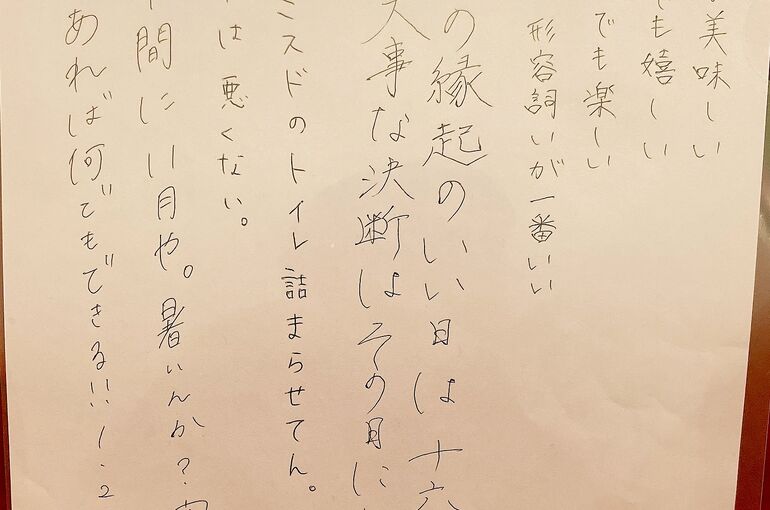 美味しい
も嬉しい
でも楽しい
形容詞いが一番いい
の縁起のいい日は十六
大事な決断はその日に
ミスドのトイレ詰まらせてん。
は悪くない。
間に11月や。暑いんか?
あれば何でもできる!!1.2